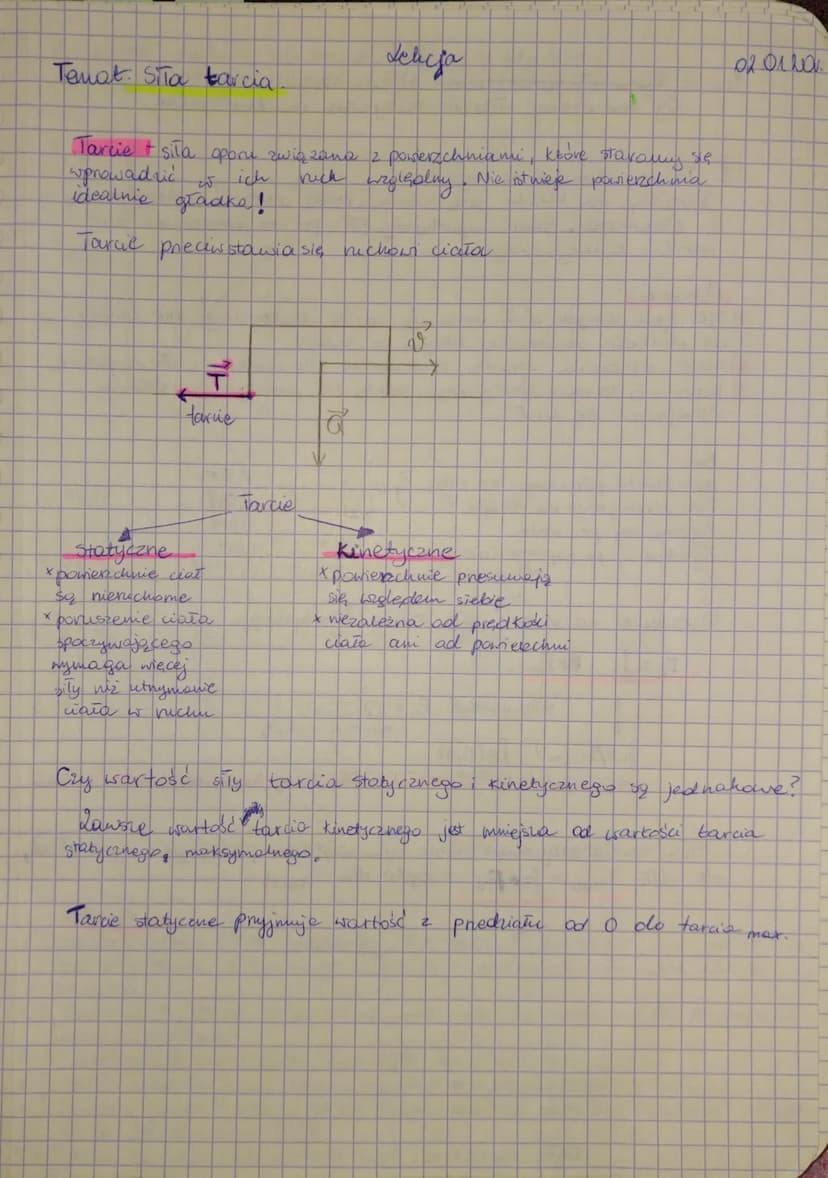 Lekcja
02.01.20
Temat: Siła tarcia.
Tarcie + siła oporu związana z powierzchniami, które staramy się
wprowadzić w ich ruch względny. Nie istnieje powierzchnia
idealnie gładka!
Tarcie przeciwstawia się ruchowi ciała
v
T
tarcie
Q
Tarcie
Statyczne
x powierzchnie ciał
są nieruchome
x poruszenie ciała
spoczywającego
wymaga więcej
siły niż utrzymanie
ciała w ruchu
Kinetyczne
x powierzchnie przesuwają
się względem siebie
x niezależna od prędkości
ciała ani od powierzchni
Czy wartość siły tarcia statycznego i kinetycznego są jednakowe?
Zawsze wartość tarcia kinetycznego jest mniejsza od wartości tarcia
statycznego, maksymalnego.
Tarcie statyczne przyjmuje wartość z przedziału od 0 do tarcia max.